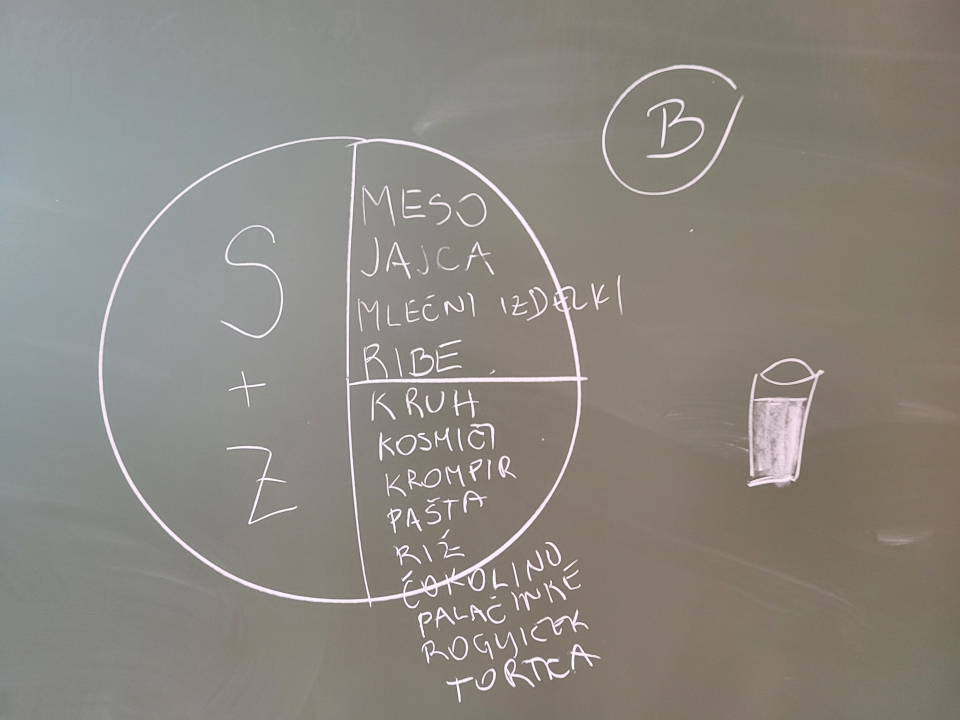 B
S
+
Z
MESO
JAJCA
MLEČNI IZDELKI
RIBE
KRUH
KOSMIČI
KROMPIR
PAŠTA
RIŽ
ČOKOLINO
PALAČINKE
ROGLJIČEK
TORTICA